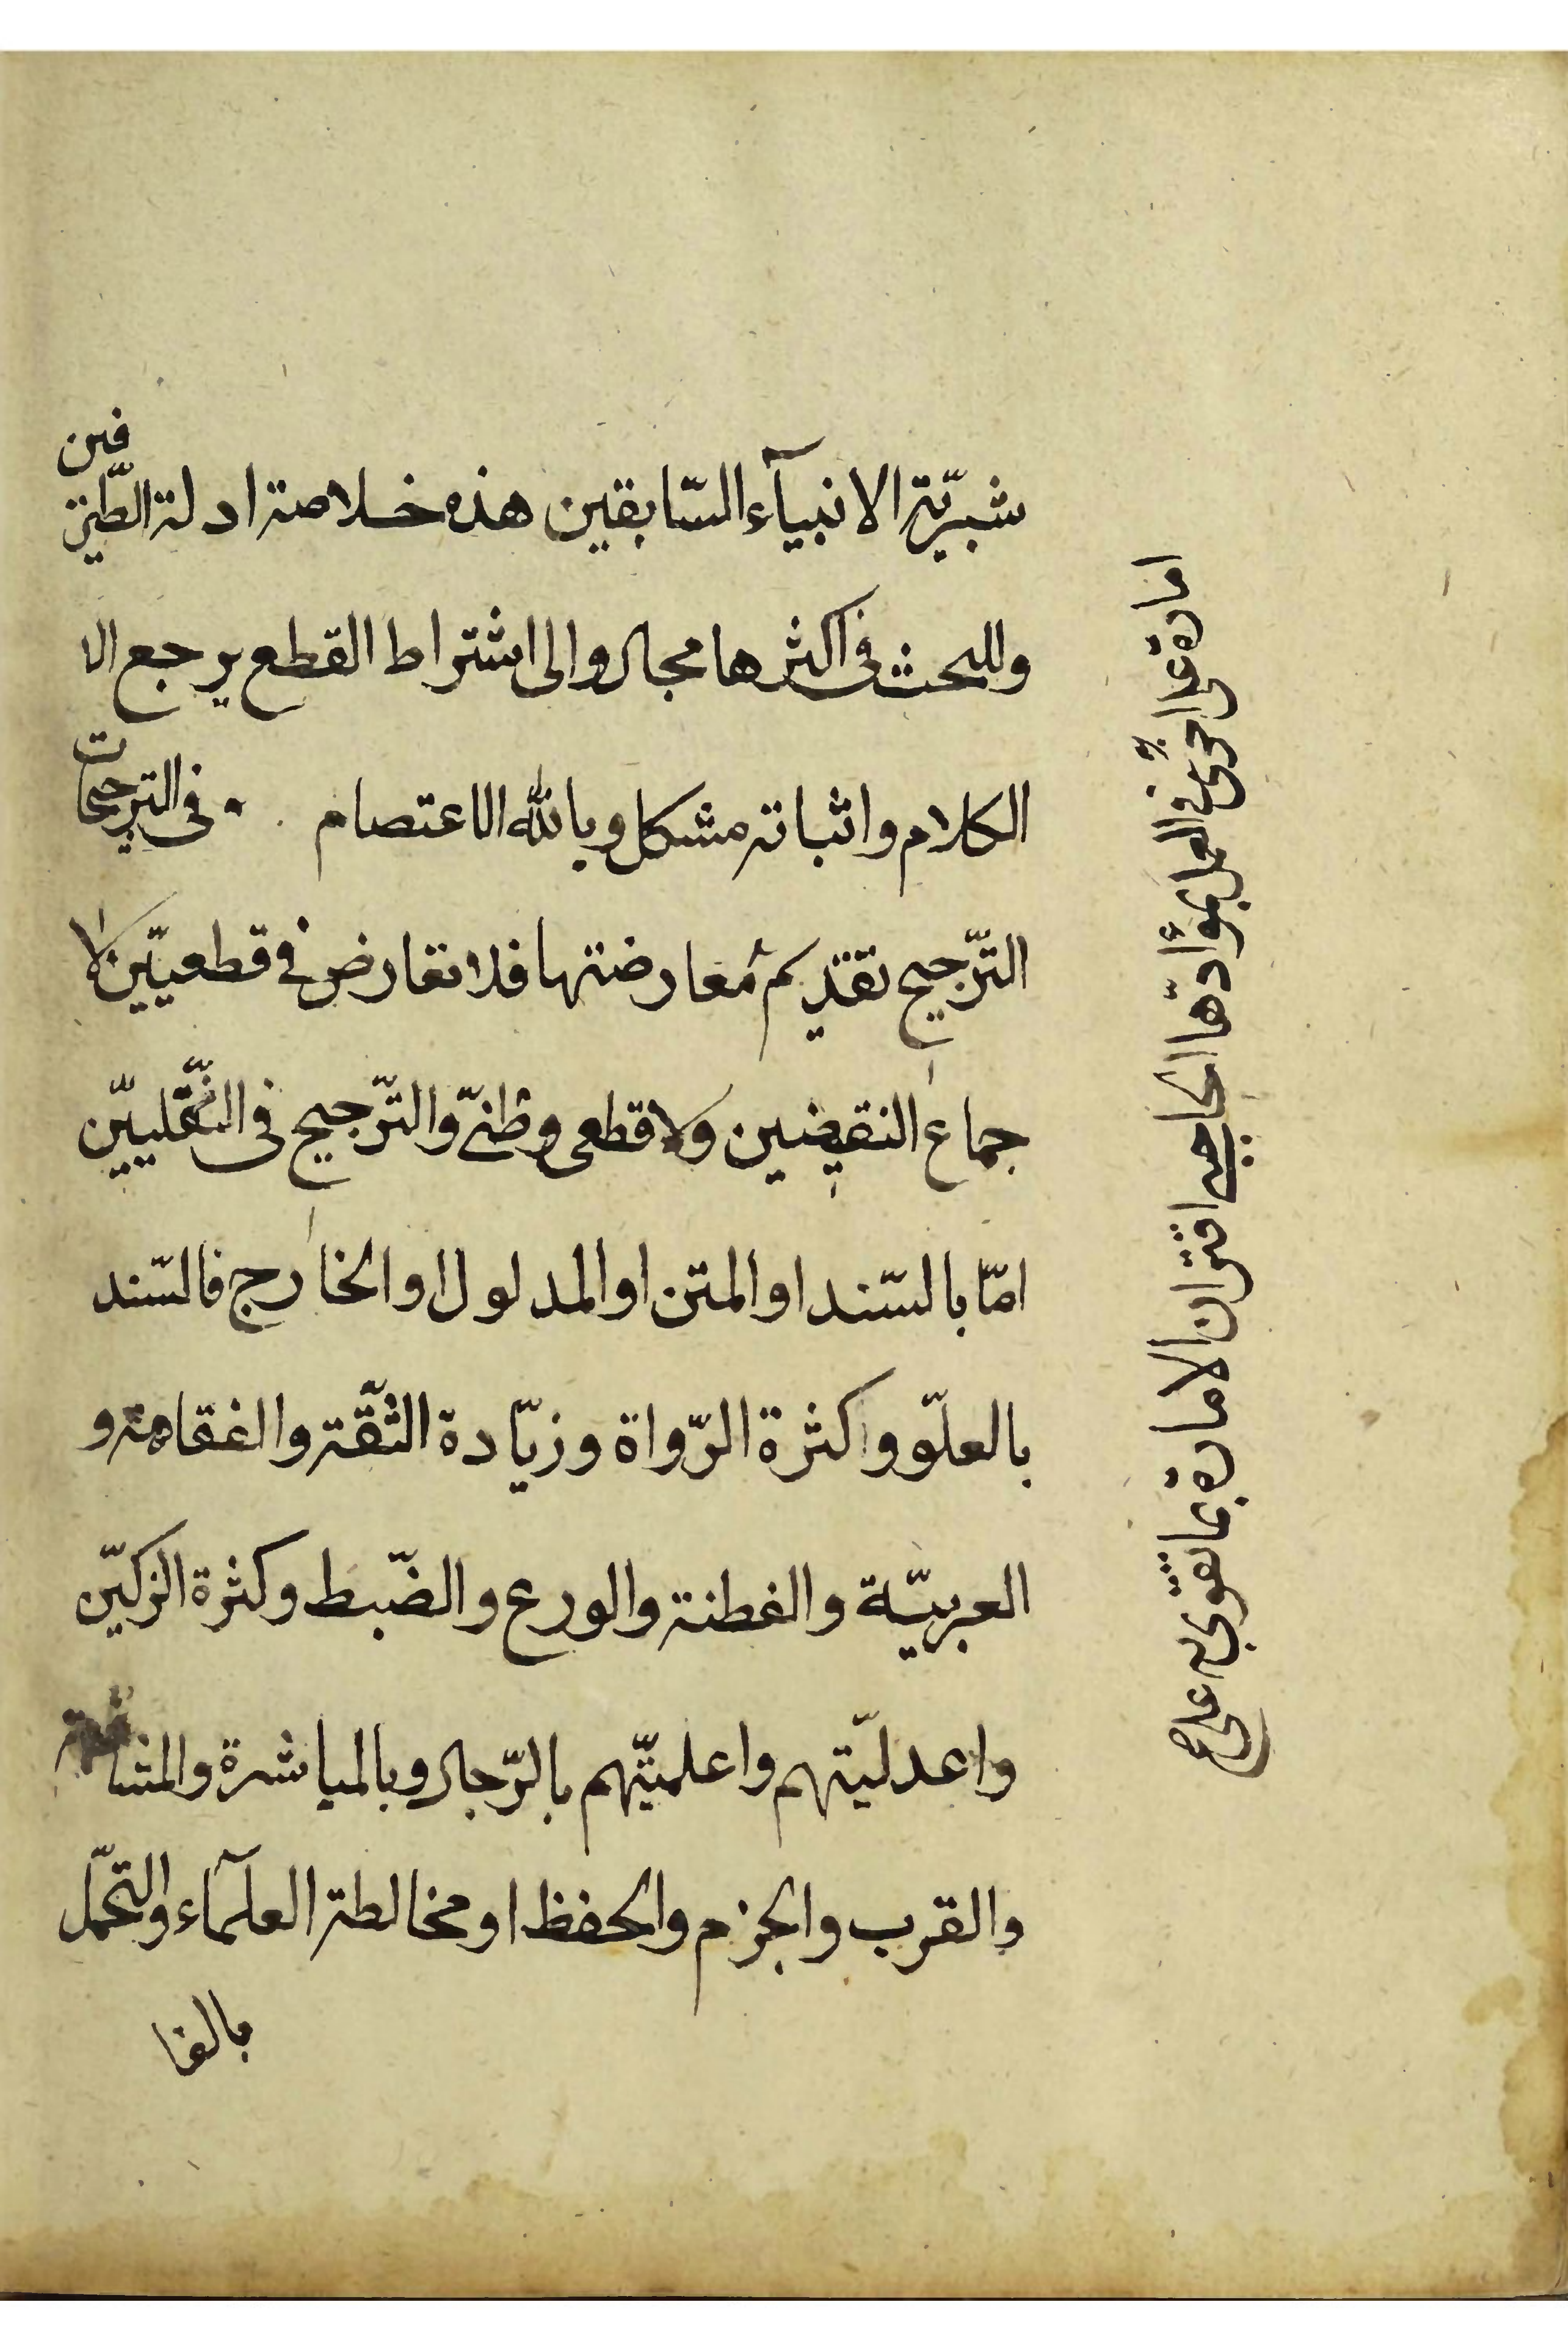 شبريّة الانبيآء السّابقين هذه خلاصة ادلة الطّر فين
وللبحث فى اكثرها مجال والى اشتراط القطع يرجع الا
الكلام واثباته مشكل وبالله الاعتصام . فى الترجيحات
التّرجيح تقديم معارضتها فلا تعارض فى قطعيّين والا
جماع النقيضين ولا قطعى وظنّى والتّرجيح فى النّقليّين
امّا بالسّند او المتن او المدلول او الخارج فالسّند
بالعلوّ وكثرة الرّواة وزيّادة الثّقة والفقاهة و
العربيّة والفطنة والورع والضّبط وكثرة المزكيّن
واعدليّتهم واعلميّتهم بالرّجال وبالمباشرة والمشافهة
والقرب والجزم والحفظ او مخالطة العلمآء والتحمّل
بالغا
امارة على اخرى فى العمل بمؤادّها الحاجبى اقتران الامارة بما تقوى به على